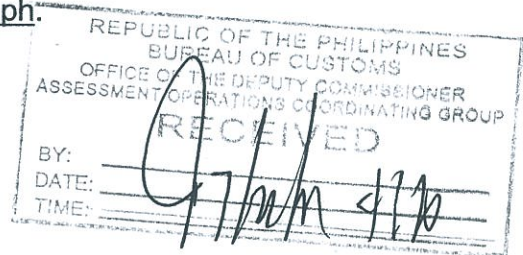 ph.
REPUBLIC OF THE PHILIPPINES
BUREAU OF CUSTOMS
OFFICE OF THE DEPUTY COMMISSIONER
ASSESSMENT OPERATIONS COORDINATING GROUP
RECEIVED
BY:
DATE:
TIME: